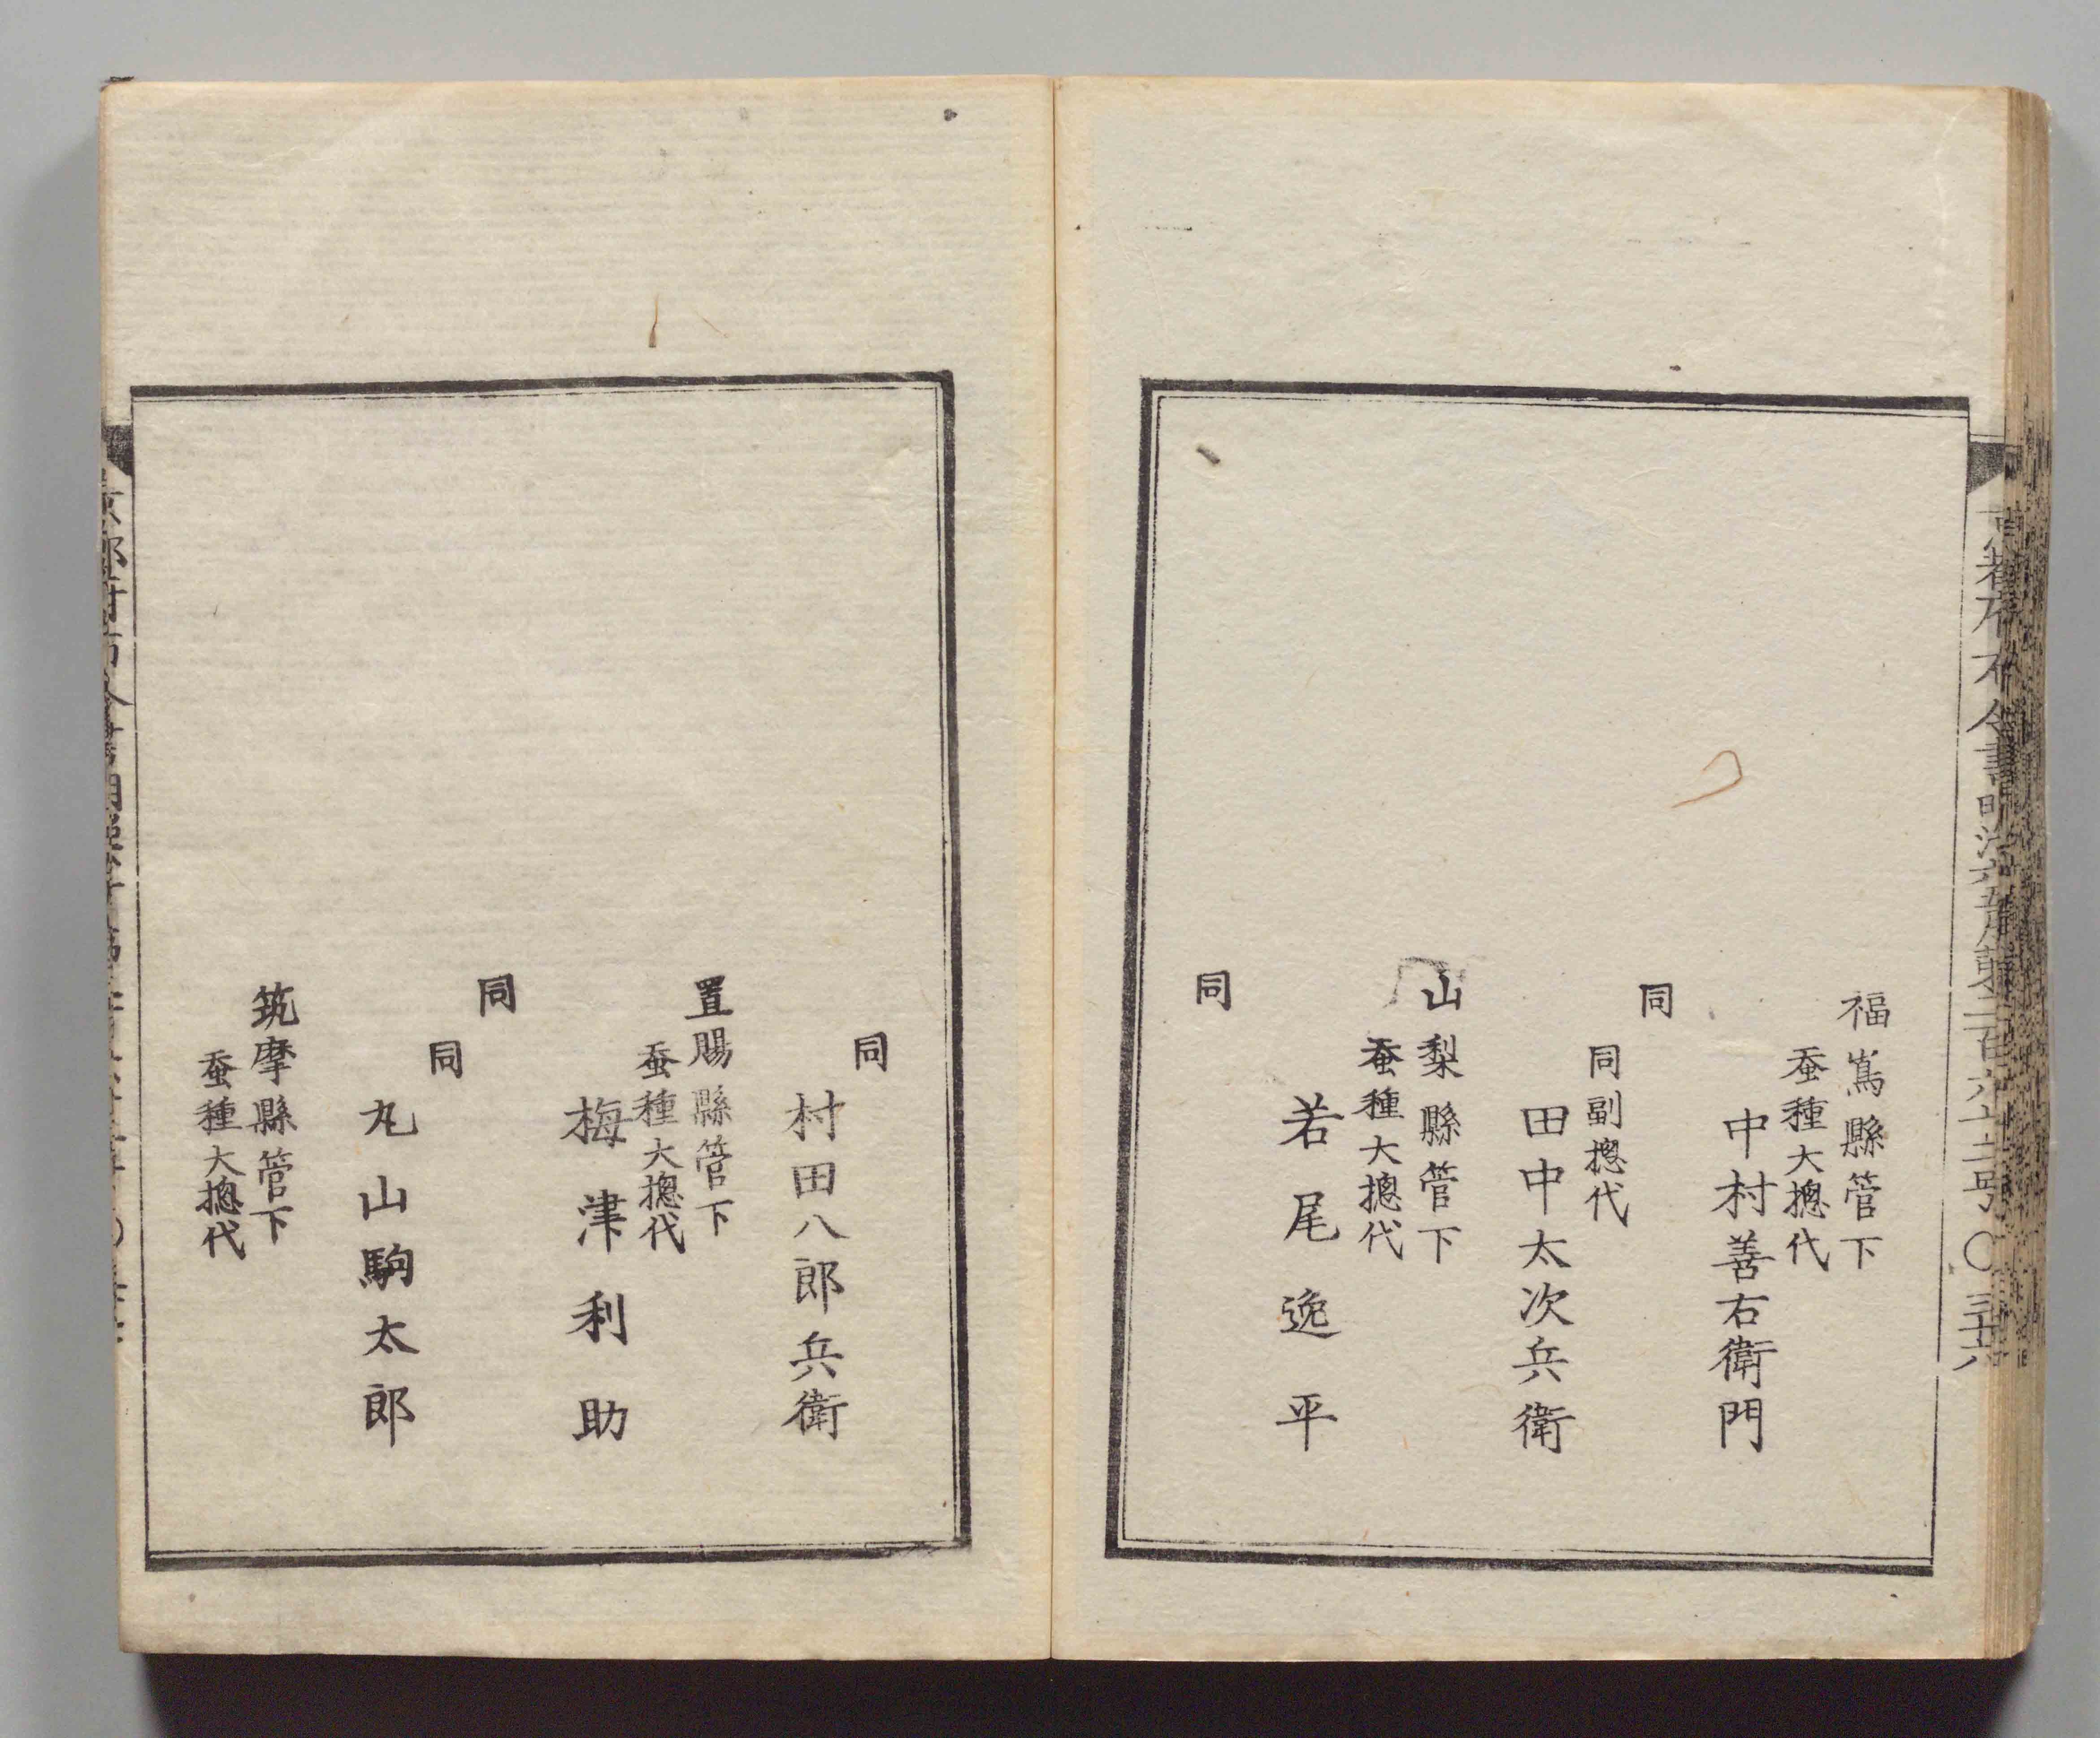 福嶌縣管下
蚕種大摠代
中村善右衛門
同
同副摠代
田中太次兵衛
山梨縣管下
蚕種大摠代
若尾逸平
同
同
村田八郎兵衛
置賜縣管下
蚕種大摠代
梅津利助
同
同
丸山駒太郎
筑摩縣管下
蚕種大摠代